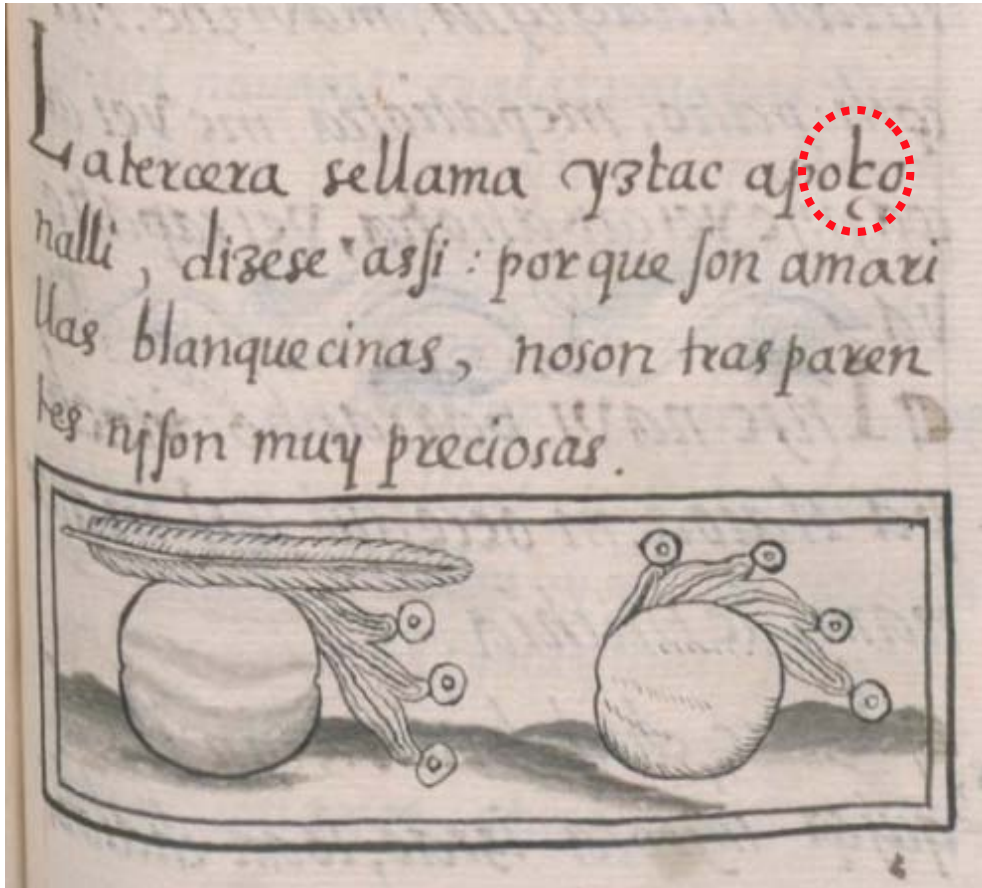 Latercera sellama yztac apoţo
nalli, dizese asſi: porque ſon amari
llas blanquecinas, noson trasparen
tes njſon muy preciosas.